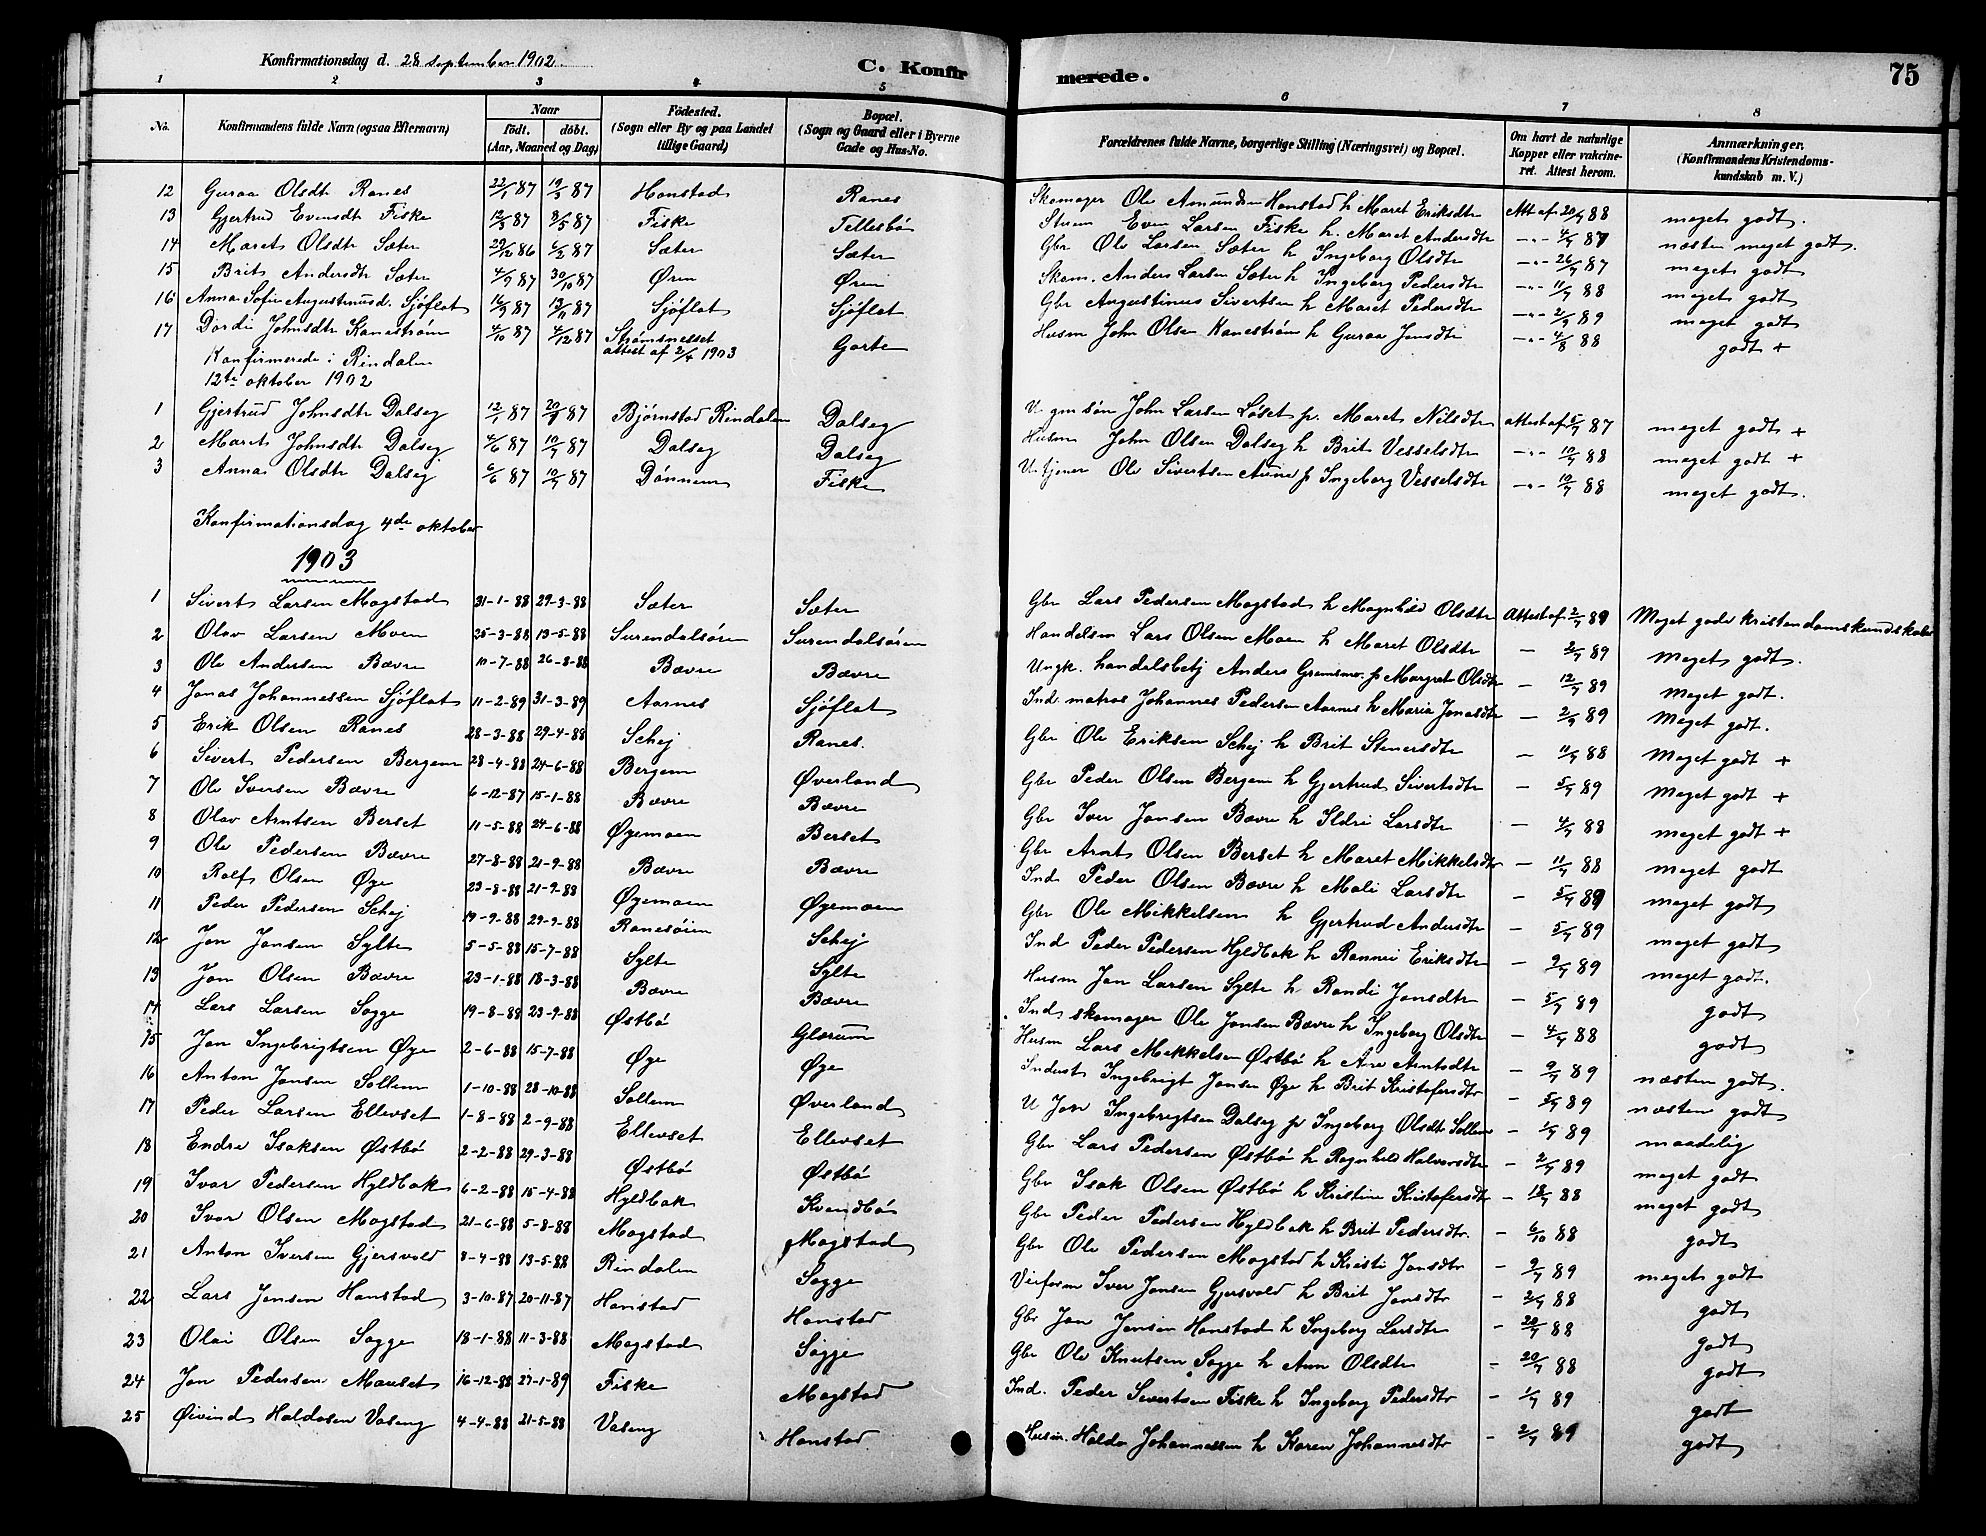 Konfirmationsdag d. 28 september 1902. C. Konfirmerede. 75
1 2 3 4 5 6 7 8
No. Konfirmandens fulde Navn (ogsaa Efternavn) Naar født. døbt. (Aar, Maaned og Dag) Fødested. (Sogn eller By og paa Landet tillige Gaard) Bopæl. (Sogn og Gaard eller i Byerne Gade og Hus-No. Forældrenes fulde Navne, borgerlige Stilling (Næringsvei) og Bopæl. Om havt de naturlige Kopper eller vakcineret. Attest herom. Anmærkninger. (Konfirmandens Kristendomskundskab m. V.)
12 Guraa Olsdt Ranes 22/1 87 19/3 87 Honstad Ranes Skomager Ole Amundsen Honstad h Maret Eriksdtr Att af 20/9 88 meget godt.
13 Gjertrud Evensdt Fiske 12/3 87 8/5 87 Fiske Tellesbø Even Larsen Fiske h. Maret Andersdtr -"- 4/7 87 næsten meget godt.
14 Maret Olsdtr Sæter 29/12 86 6/2 87 Sæter Sæter Gbr Ole Larsen Sæter h Ingeborg Olsdtr -"- 26/7 87 meget godt
15 Brit Andersdtr Sæter 4/9 87 30/10 87 Øren Øren Skom. Anders Larsen Sæter h Ingeborg Pedersdtr -"- 11/7 88 meget godt
16 Anna Sofie Augustinusd. Sjøflot 16/9 87 13/11 87 Sjøflot Sjøflot Gbr Augustinus Sivertsen h Maret Pedersdtr -"- 2/9 89 meget godt
17 Dordi Johnsdtr Kanestrøm 4/10 87 4/12 87 Strømsneset attest af 2/4 1903 Gorte Husm John Olsen Kanestrøm h Guraa Jonsdtr -"- 4/8 88 godt +
Konfirmerede i Rindalen
12te oktober 1902
1 Gjertrud Johnsdtr Dalseg 12/1 87 20/3 87 Bjørnstad Rindalen Dalseg U gmsøn John Larsen Løset p. Maret Nilsdtr attest af 5/7 87 meget godt +
2 Maret Johnsdtr Dalseg 4/6 87 10/7 87 Dalseg Dalseg Husm John Olsen Dalseg h Brit Vesselsdtr -"- 10/7 88 meget godt +
3 Anna Olsdtr Dalseg 6/6 87 10/7 87 Dønnem Fiske U. tjener Ole Sivertsen Aune p Ingeborg Vesselsdtr -"- 10/7 88 meget godt.
Konfirmationsdag 4de oktober
1903
1 Sivert Larsen Mogstad 31-1-88 29-3-88 Sæter Sæter Gbr Lars Pedersen Mogstad h Magnhild Olsdtr Attest af 2/7 89 Meget gode kristendomskundskaber
2 Olav Larsen Moen 25-3-88 13-5-88 Surendalsøren Surendalsøren Handelsm Lars Olsen Moen h Maret Olsdtr - 2/7 89 Meget godt.
3 Ole Andersen Bævre 10-7-88 26-8-88 Bævre Bævre Ungk. handelsbetj Anders p Margret Olsdtr - 12/7 89 Meget godt.
4 Jonas Johannessen Sjøflot 11-2-89 31-3-89 Aarnes Sjøflot Ind. matros Johannes Pedersen Aarnes h Maria Jonasdtr - 2/9 89 Meget godt.
5 Erik Olsen Ranes 28-3-88 29-4-88 Schej Ranes. Gbr Ole Eriksen Schej h Brit Stenersdtr - 11/9 88 Meget godt +
6 Sivert Pedersen Bergem 28-4-88 24-6-88 Bergem Øverland Gbr Peder Olsen Bergem h Gjertrud Sivertsdtr - 5/7 89 Meget godt +
7 Ole Iversen Bævre 6-12-87 15-1-88 Bævre Bævre Gbr Iver Jonsen Bævre h Ildri Larsdtr - 4/7 88 meget godt +
8 Olav Arntsen Berset 11-5-88 24-6-88 Øyemoen Berset Gbr Arnt Olsen Berset h Maret Mikkelsdtr - 11/7 88 meget godt
9 Ole Pedersen Bævre 27-8-88 21-9-88 Bævre Bævre Ind Peder Olsen Bævre h Mali Larsdtr - 5/7 89 meget godt
10 Rolf Olsen Øye 23-8-88 21-9-88 Øyemoen Øyemoen Gbr Ole Mikkelsen h Gjertrud Andersdtr - 5/7 89 meget godt
11 Peder Pedersen Schej 19-9-88 29-9-88 Ranesøien Schej Ind Peder Pedersen Hyldbak h Rannei Eriksdtr - 9/7 89 meget godt.
12 Jon Jonsen Sylte 5-5-88 15-7-88 Sylte Sylte Husm Jon Larsen Sylte h Randi Jonsdtr - 5/7 89 godt
13 Jon Olsen Bævre 23-1-88 18-3-88 Bævre Bævre Ind skomager Ole Jonsen Bævre h Ingeborg Olsdtr - 4/7 88 godt
14 Lars Larsen Sogge 19-8-88 23-9-88 Østbø Glærum Husm Lars Mikkelsen Østbø h Ane Arntsdtr - 9/7 89 næsten godt.
15 Jon Ingebrigtsen Øye 2-6-88 15-7-88 Øye Øye Inderst Ingebrigt Jonsen Øye h Brit Kristofersdtr - 5/7 89 næsten godt
16 Anton Jonsen Sollem 1-10-88 28-10-88 Sollem Øverland U Jon Ingebrigtsen Dalseg p Ingeborg Olsdtr Sollem - 1/9 89 maadelig
17 Peder Larsen Ellevset 1-8-88 2-9-88 Ellevset Ellevset Gbr Lars Pedersen Østbø h Ragnhild Halvorsdtr - 2/7 89 meget godt
18 Endre Isaksen Østbø 2-2-88 29-3-88 Østbø Østbø Gbr Isak Olsen Østbø h Kristine Kristofersdtr - 18/7 88 meget godt
19 Ivar Pedersen Hyldbak 6-2-88 15-4-88 Hyldbak Kvendbø Gbr Peder Pedersen Hyldbak h Brit Pedersdtr. - 6/10 88 godt
20 Ivar Olsen Mogstad 21-6-88 5-8-88 Mogstad Mogstad Gbr Ole Pedersen Mogstad h Kristi Jonsdtr - 9/7 89 meget godt
21 Anton Iversen Gjersvold 8-4-88 13-5-88 Rindalen Sogge Iver Jonsen Gjersvold h Brit Jonsdtr - 2/7 88 godt
22 Lars Jonsen Honstad 3-10-87 20-11-87 Honstad Honstad Gbr Jon Jonsen Honstad h Ingeborg Larsdtr - 20/7 88 godt
23 Olai Olsen Sogge 18-1-88 11-3-88 Mogstad Sogge Gbr Ole Knutsen Sogge h Ann Olsdtr - 20/7 88 godt
24 Jon Pedersen Mauset 16-12-88 27-1-89 Fiske Mogstad Ind. Peder Sivertsen Fiske h Ingeborg Pedersdtr - 1/7 89 godt
25 Øivind Haldosen Vaseng 4-4-88 21-5-88 Vaseng Honstad Husm. Haldo Johannessen h Karen Johannesdtr - 2/7 89 godt